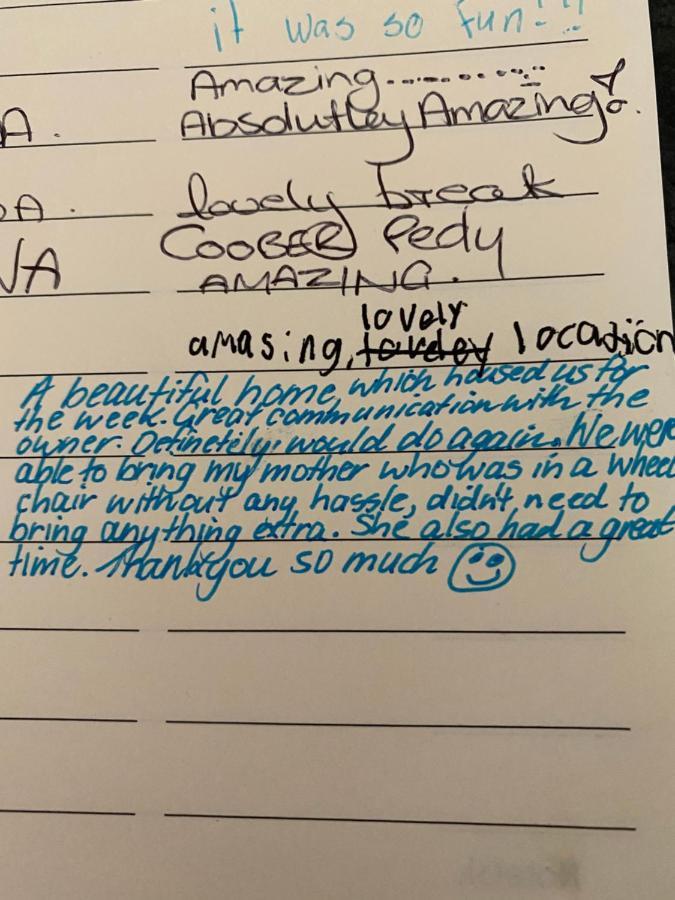 it was so fun!!
Amazing............
A. Absolutley Amazing
A. lovely break
COOBER Pedy
AMAZING.
lovely
amasing, location
A beautiful home, which housed us for
the week. Great communication with the
owner. Definetely would do again. We were
able to bring my mother who was in a wheel
chair without any hassle, didn't need to
bring anything extra. She also had a great
time. Thankyou so much